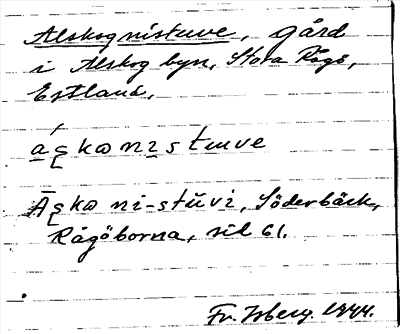 Alskognistuve, gård
i Alskog byn, Stora Rågö,
Estland.
ą́ckωnistuve
Āckω ni-stŭvi, Söderbäck,
Rågöborna, sid 61.
Fr. Isberg. 1944.